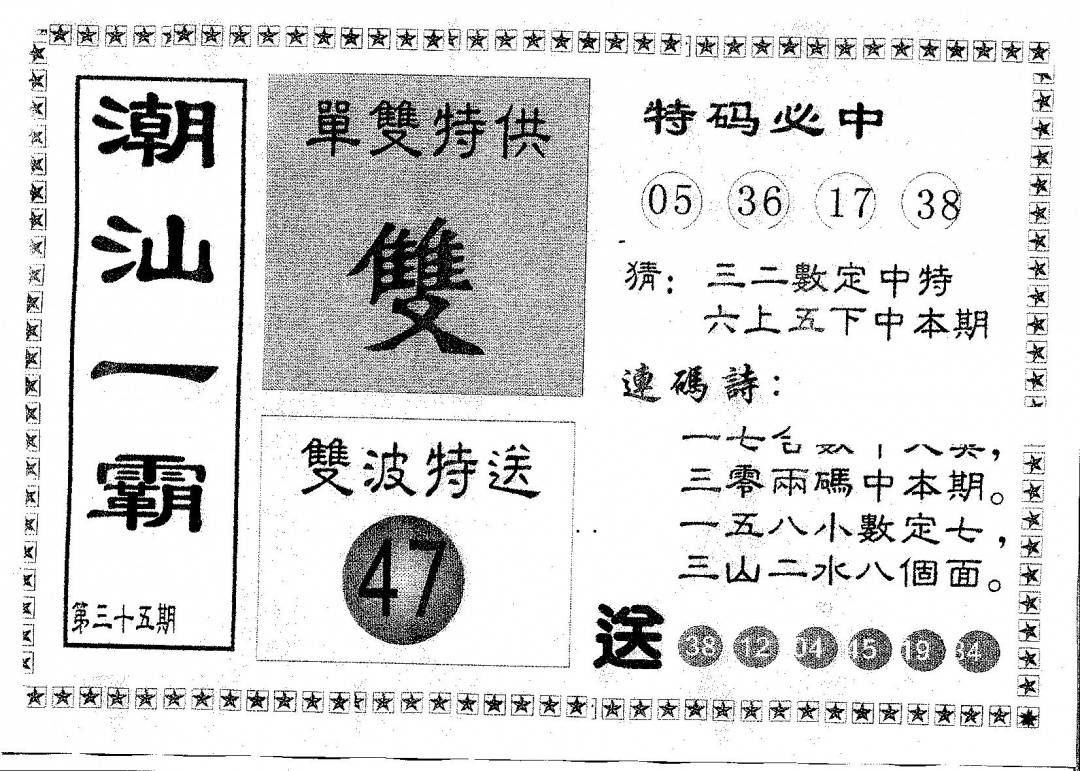 潮汕一霸
第三十五期
單雙特供
雙
雙波特送
47
特码必中
05 36 17 38
猜：三二數定中特
六上五下中本期
連碼詩：
一七合數十八奧，
三零兩碼中本期。
一五八小數定七，
三山二水八個面。
送 38 12 04 45 19 34